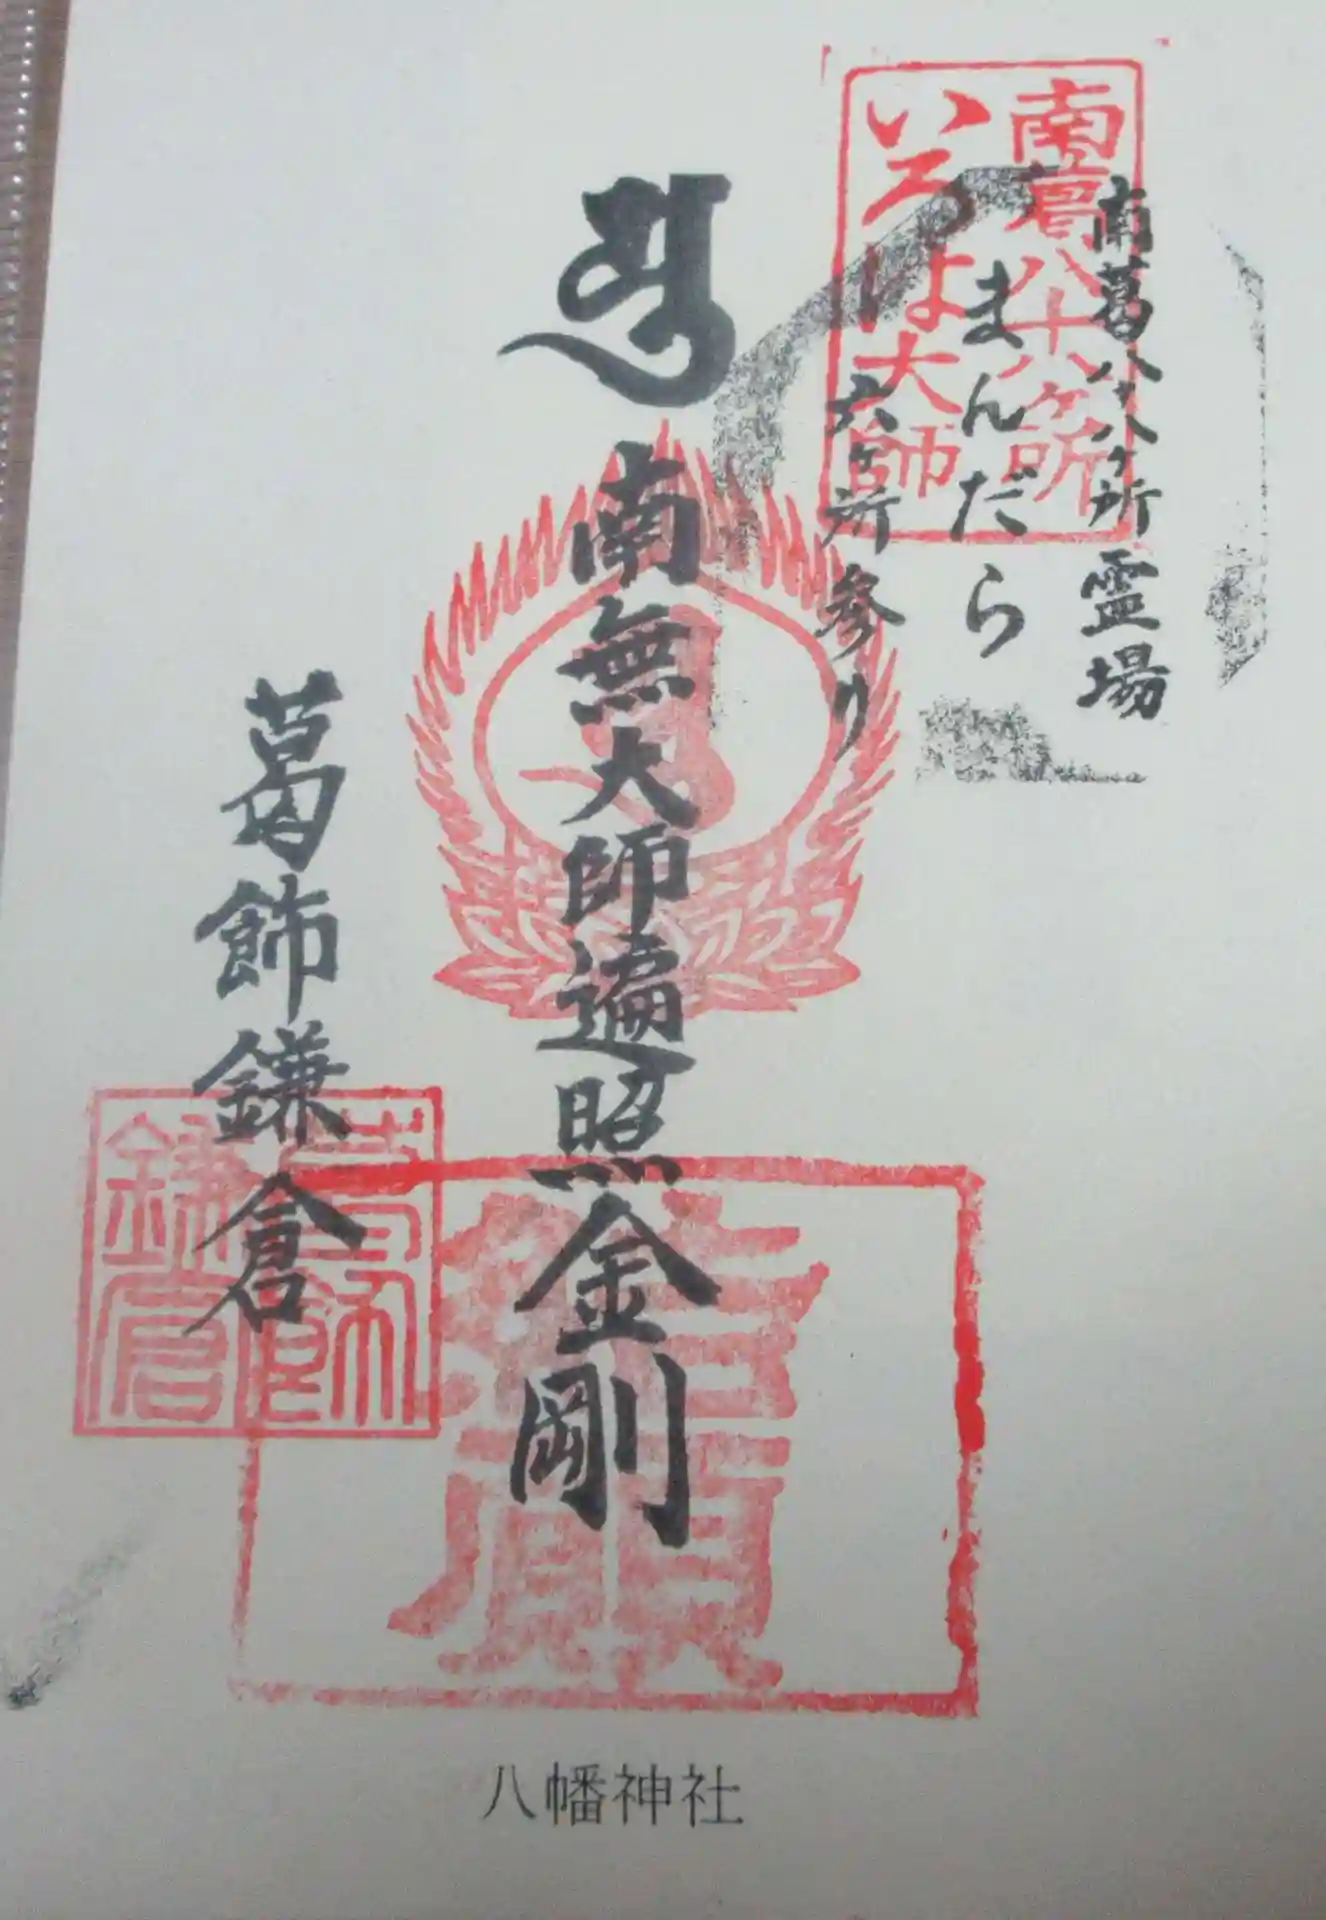 南葛八十八ヶ所
いろは大師
南葛八十八ヶ所霊場
まんだら
六ヶ所参り
南無大師遍照金剛
葛飾鎌倉
葛飾
鎌倉
八幡神社